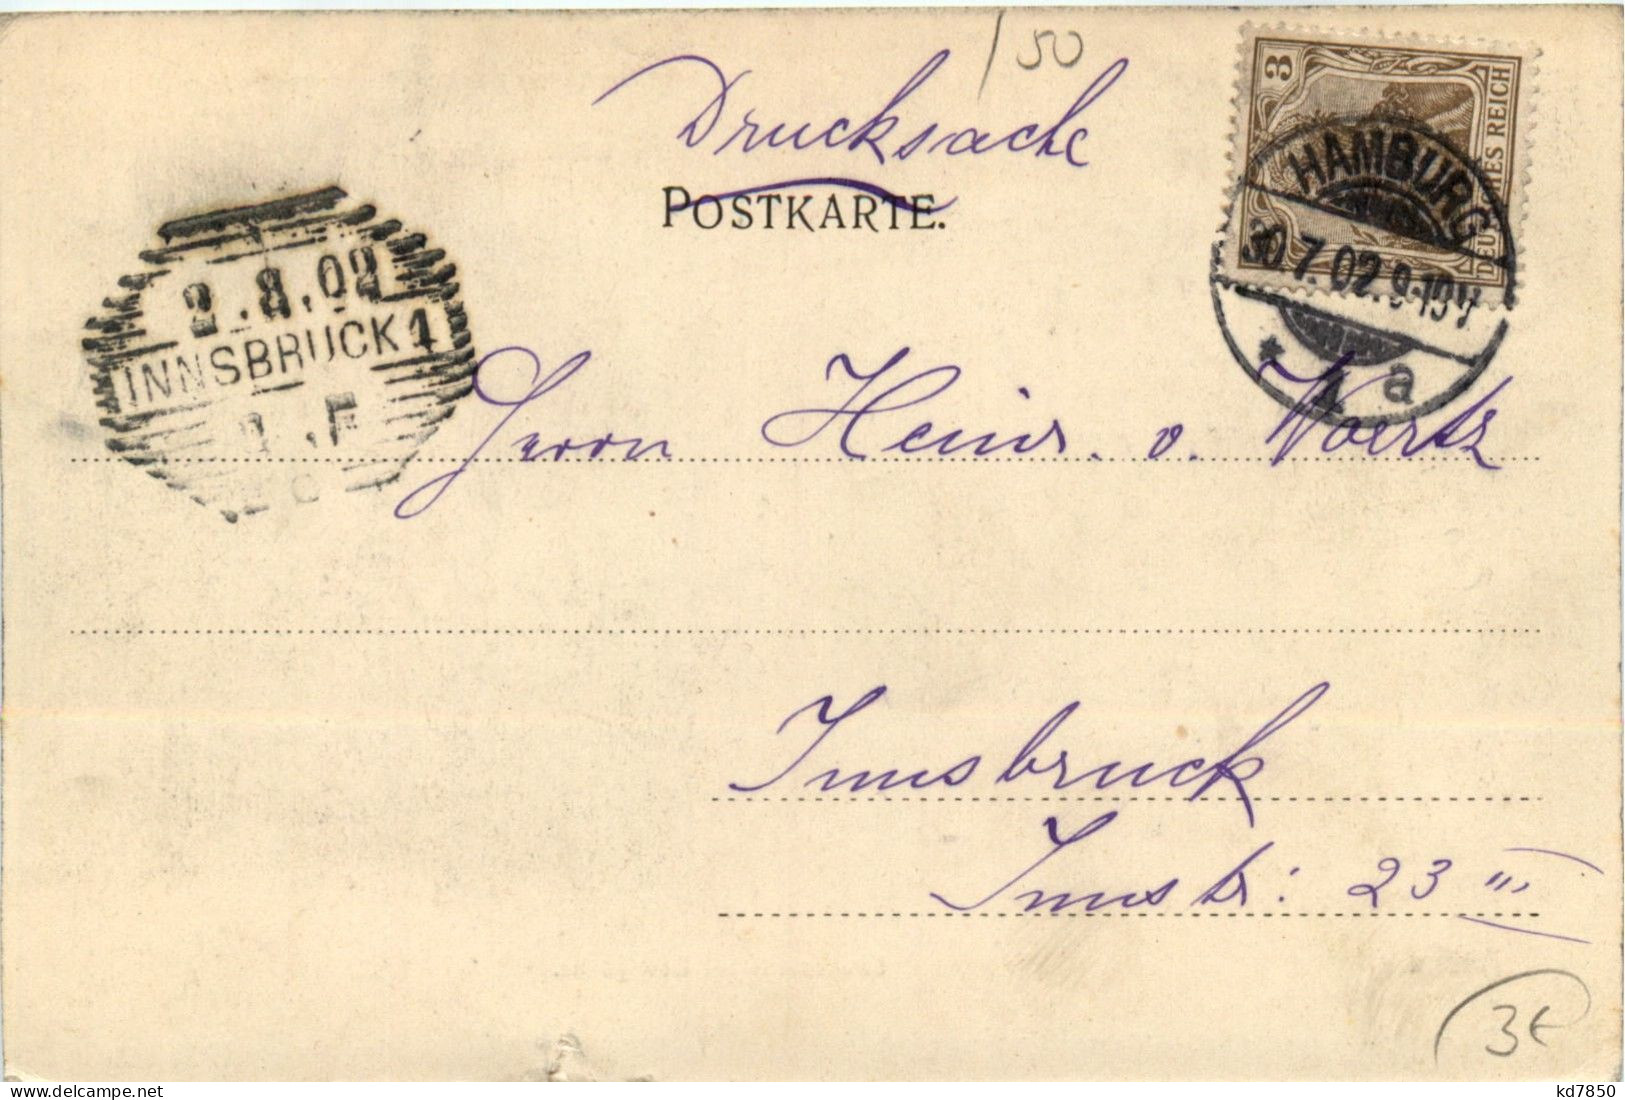 /50
Drucksache
POSTKARTE.
3
DEUTSCHES REICH
HAMBURG
30.7.02.9-10V
* 1 a
2.8.02
INNSBRUCK 1
1.F
Herrn Heinr. v. Woertz
Innsbruck
Innstr: 23 III
3€
kd7850